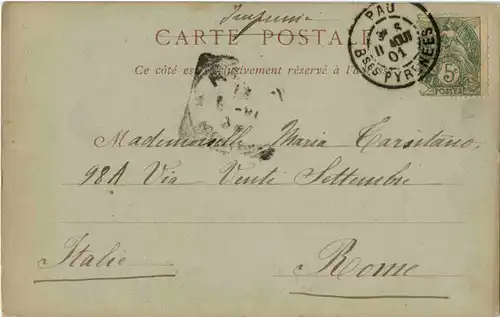 Imprimé
CARTE POSTALE
Ce côté est exclusivement réservé à l'a
PAU
11 AOUT
01
Bses PYRENEES
5c
POSTES
Mademoiselle Maria Tarsitano
98A Via Venti Settembre
Italie
Rome